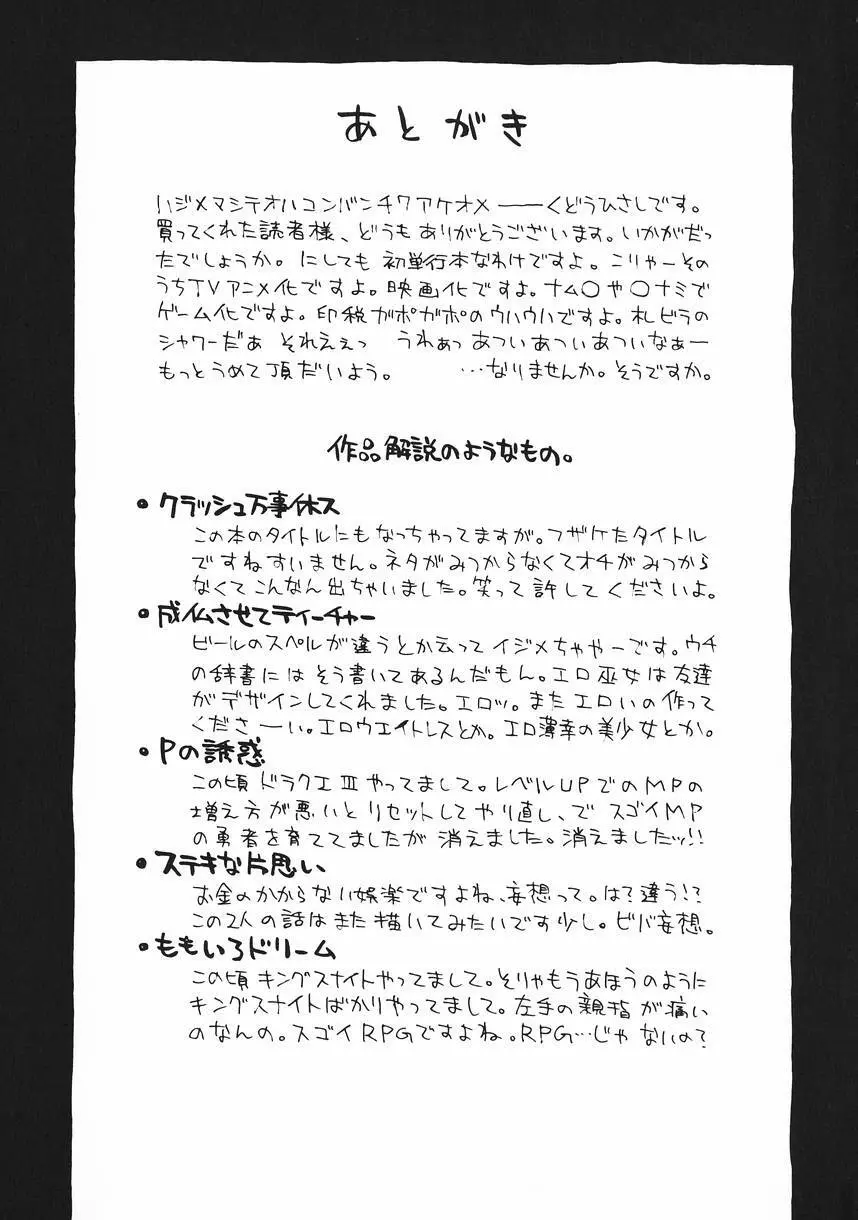 あとがき
ハジメマシテオハコンバンチワアケオメ───くどうひさしです。
買ってくれた読者様、どうもありがとうございます。いかがだっ
たでしょうか。にしても初単行本なわけですよ。こりゃーその
うちTVアニメ化ですよ。映画化ですよ。ナム〇や〇ナミで
ゲーム化ですよ。印税ガポガポのウハウハですよ。札ビラの
シャワーだぁ それえぇっ うわぁっあついあついあついなぁー
もっとうめて頂だいよう。 …なりませんか。そうですか。
作品解説のようなもの。
・クラッシュ万事休ス
この本のタイトルにもなっちゃってますが。フザケたタイトル
ですねすいません。ネタがみつからなくてオチがみつから
なくてこんなん出ちゃいました。笑って許してくださいよ。
・成仏させてティーチャー
ビールのスペルが違うとか云ってイジメちゃやーです。ウチ
の辞書にはそう書いてあるんだもん。エロ巫女は友達
がデザインしてくれました。エロッ。またエロいの作って
くださーい。エロウエイトレスとか。エロ薄幸の美少女とか。
・Pの誘惑
この頃ドラクエIIIやってまして。レベルUPでのMPの
増え方が悪いとリセットしてやり直し、でスゴイMP
の勇者を育ててましたが消えました。消えましたッ!!
・ステキな片思い
お金のかからない娯楽ですよね、妄想って。は?違う!?
この2人の話はまた描いてみたいです少し。ビバ妄想。
・ももいろドリーム
この頃キングスナイトやってまして。そりゃもうあほうのように
キングスナイトばかりやってまして。左手の親指が痛い
のなんの。スゴイRPGですよね。RPG…じゃないの?